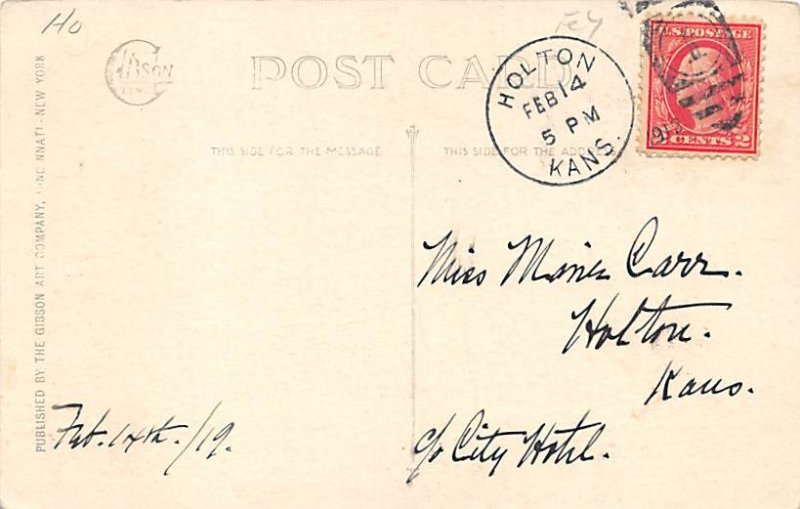 Ho
GIBSON
POST CARD
HOLTON
FEB 14
5 PM
KANS.
U.S. POSTAGE
2 CENTS 2
THIS SIDE FOR THE MESSAGE
THIS SIDE FOR THE ADDRESS
PUBLISHED BY THE GIBSON ART COMPANY, CINCINNATI - NEW YORK
Miss Marie Carr.
Holton.
Kans.
c/o City Hotel.
Feb. 14th. /19.